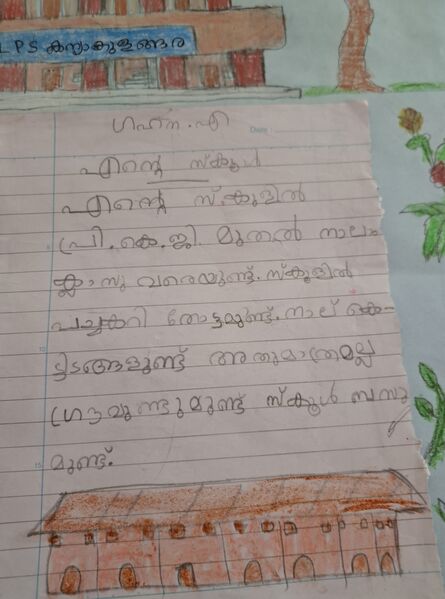 LPS കന്യാകുളങ്ങര
ഗഹന. എ
Date
എന്റെ സ്കൂൾ
എന്റെ സ്കൂളിൽ
പ്രി. കെ. ജി. മുതൽ നാലാം
ക്ലാസു വരെയുണ്ട്. സ്കൂളിൽ
പച്ചക്കറി തോട്ടമുണ്ട്. നാല് കെ-
ട്ടിടങ്ങളുണ്ട് അതുമാത്രമല്ല
ഗ്രൗണ്ടുമുണ്ട് സ്കൂൾ ബസു
മുണ്ട്.